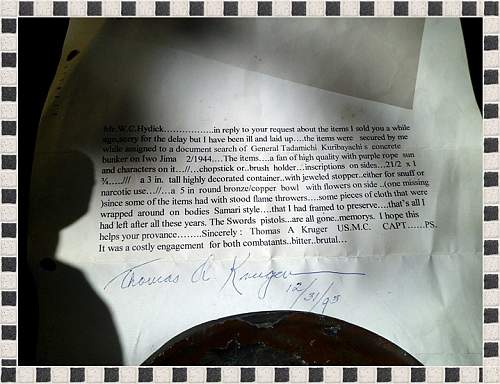 Mr. W.C.Hydick.................in reply to your request about the items I sold you a while
ago,sorry for the delay but I have been ill and laid up....the items were secured by me
while assigned to a document search of General Tadamichi Kuribayachi s concrete
bunker on Iwo Jima 2/1944....The items....a fan of high quality with purple rope sun
and characters on it....//....chopstick or..brush holder...inscriptions on sides...21/2 x 1
¾.....// a 3 in. tall highly decorated container..with jeweled stopper..either for snuff or
narcotic use....//....a 5 in round bronze/copper bowl with flowers on side ..(one missing
)since some of the items had with stood flame throwers....some pieces of cloth that were
wrapped around on bodies Samari style....that I had framed to preserve....that's all I
had left after all these years. The Swords pistols...are all gone..memorys. I hope this
helps your provance........Sincerely : Thomas A Kruger US.M.C. CAPT......PS.
It was a costly engagement for both combatants..bitter..brutal...
Thomas A Kruger
12/31/95